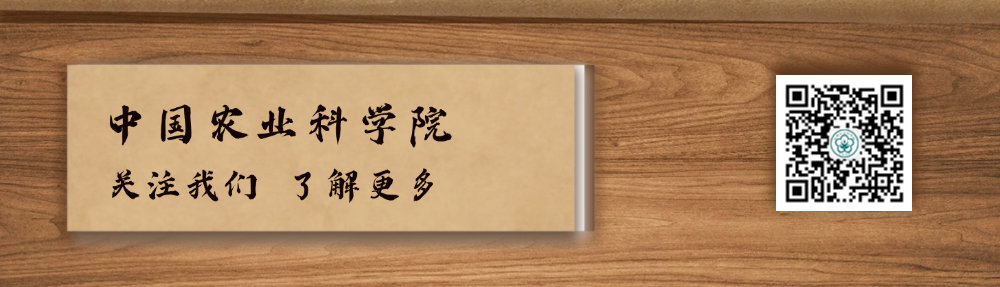 中国农业科学院
关注我们 了解更多